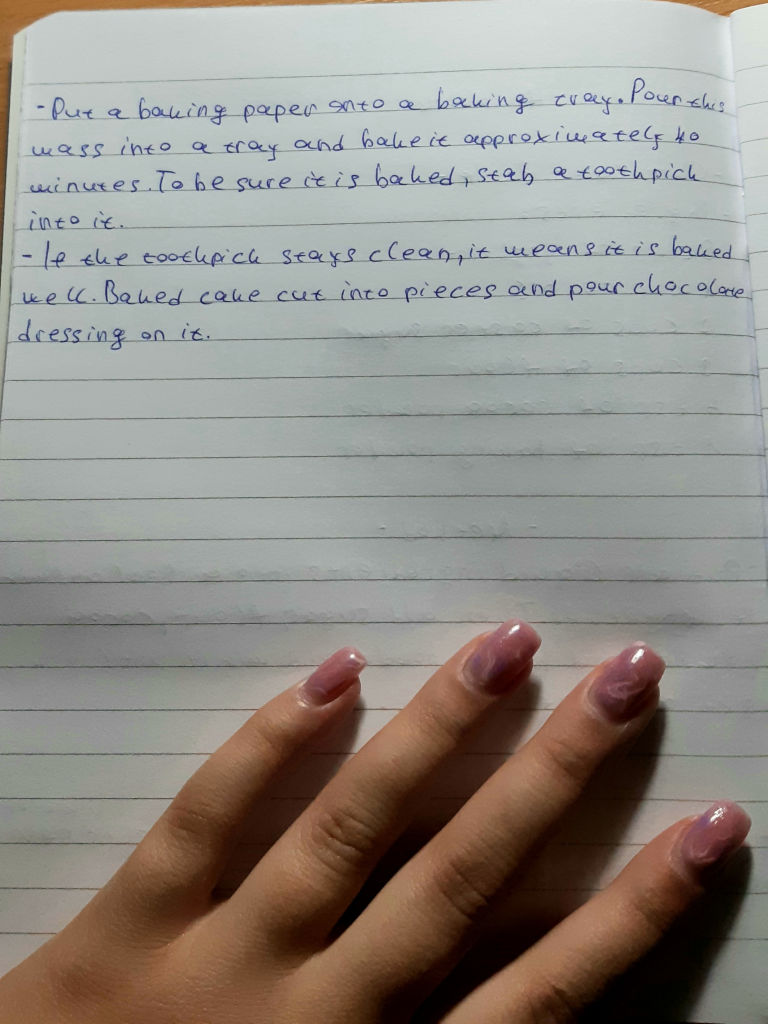 - Put a baking paper onto a baking tray. Pour this
mass into a tray and bake it approximately 40
minutes. To be sure it is baked, stab a toothpick
into it.
- If the toothpick stays clean, it means it is baked
well. Baked cake cut into pieces and pour chocolate
dressing on it.